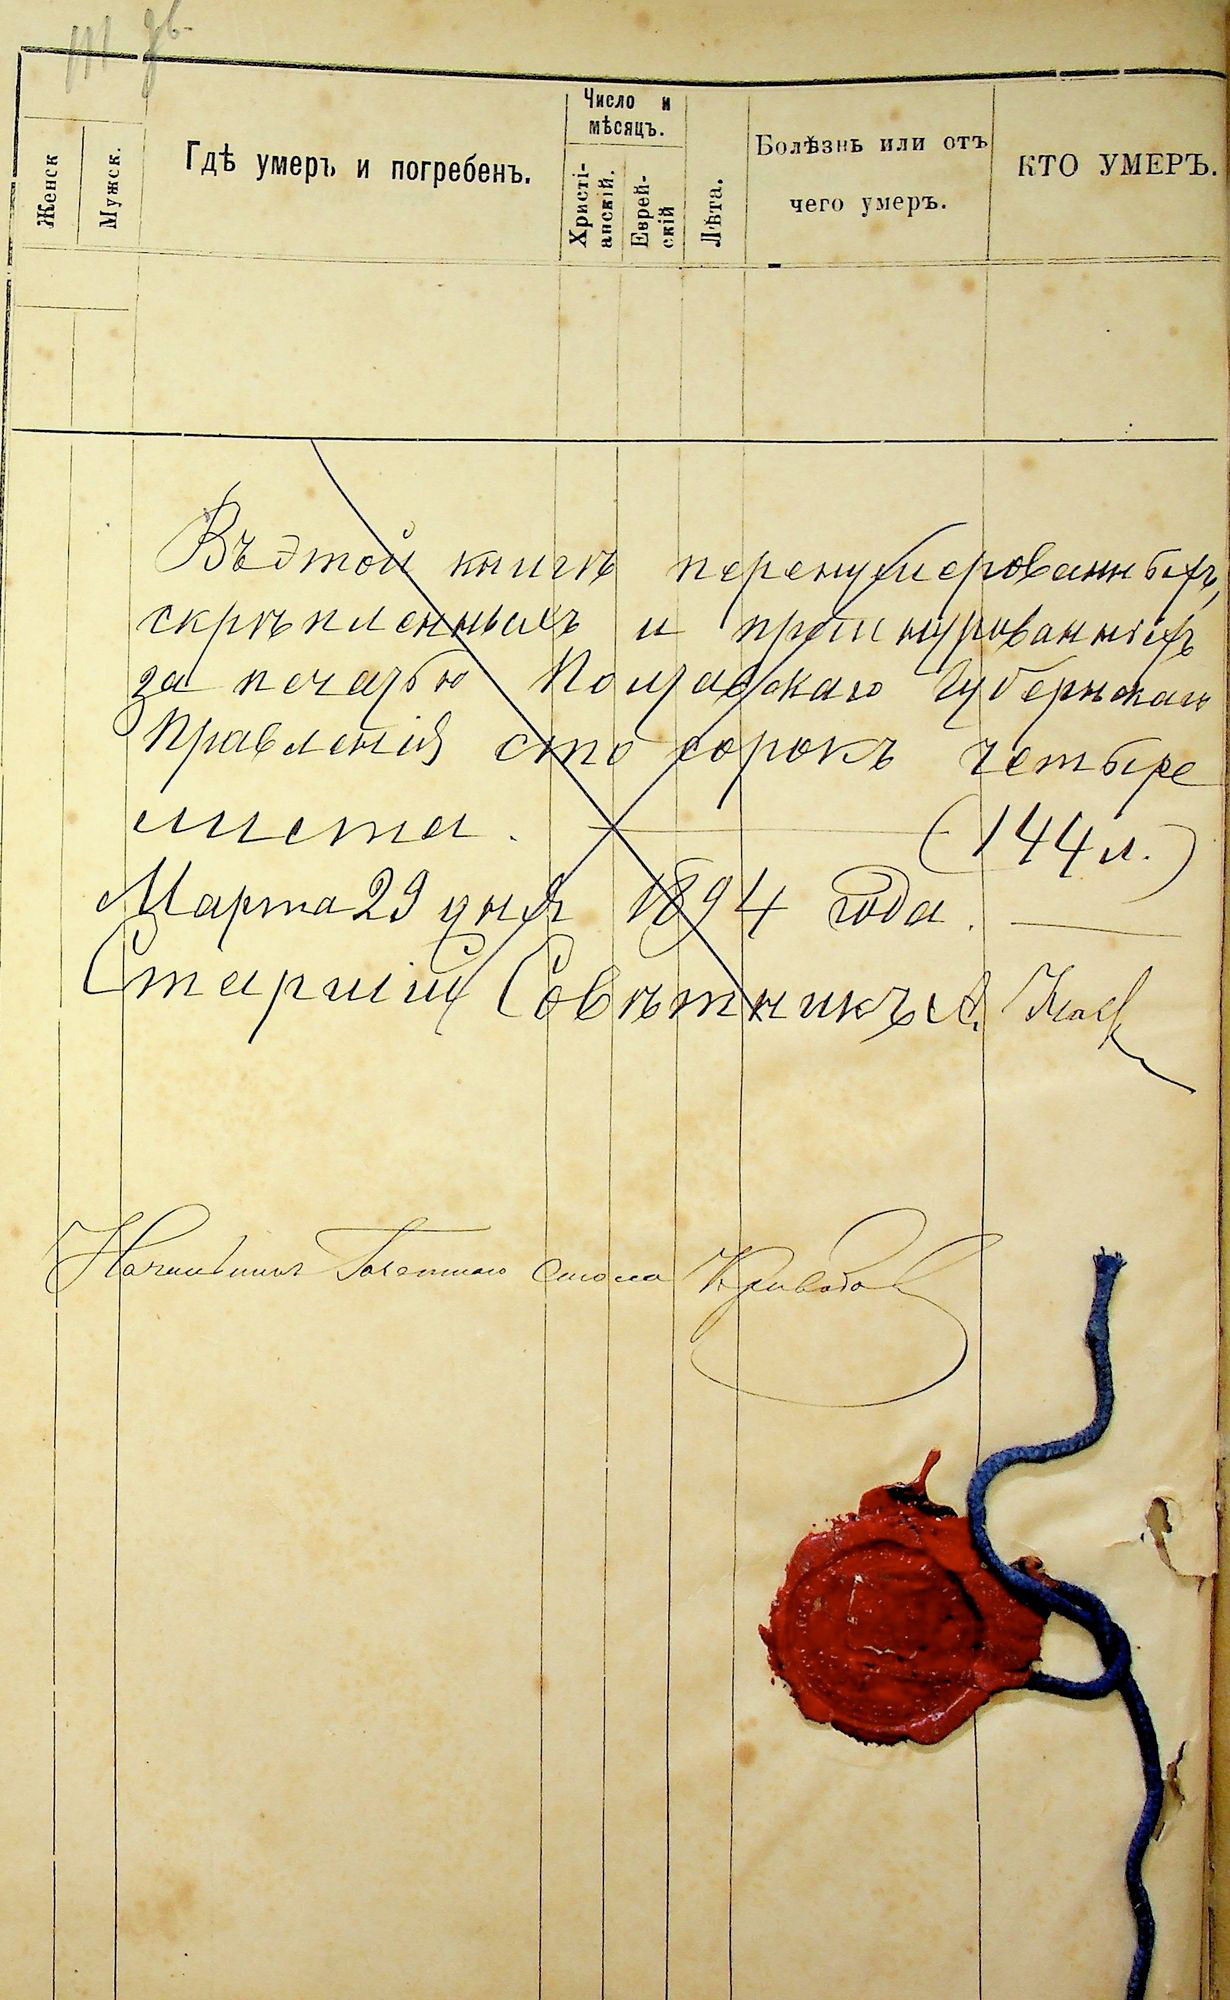 Женск
Мужск.
Гдѣ умеръ и погребенъ.
Число и
мѣсяцъ.
Христі-
анскій.
Еврей-
скій
Лѣта.
Болѣзнь или отъ
чего умеръ.
КТО УМЕРЪ.
Въ этой книгѣ перенумерованныхъ,
скрѣпленныхъ и прошнурованныхъ
за печатью Полтавскаго Губернскаго
Правленія сто сорокъ четыре
листа. (144 л.)
Марта 29 дня 1894 года.
Старшій Совѣтникъ А.
Начальникъ Газетнаго стола